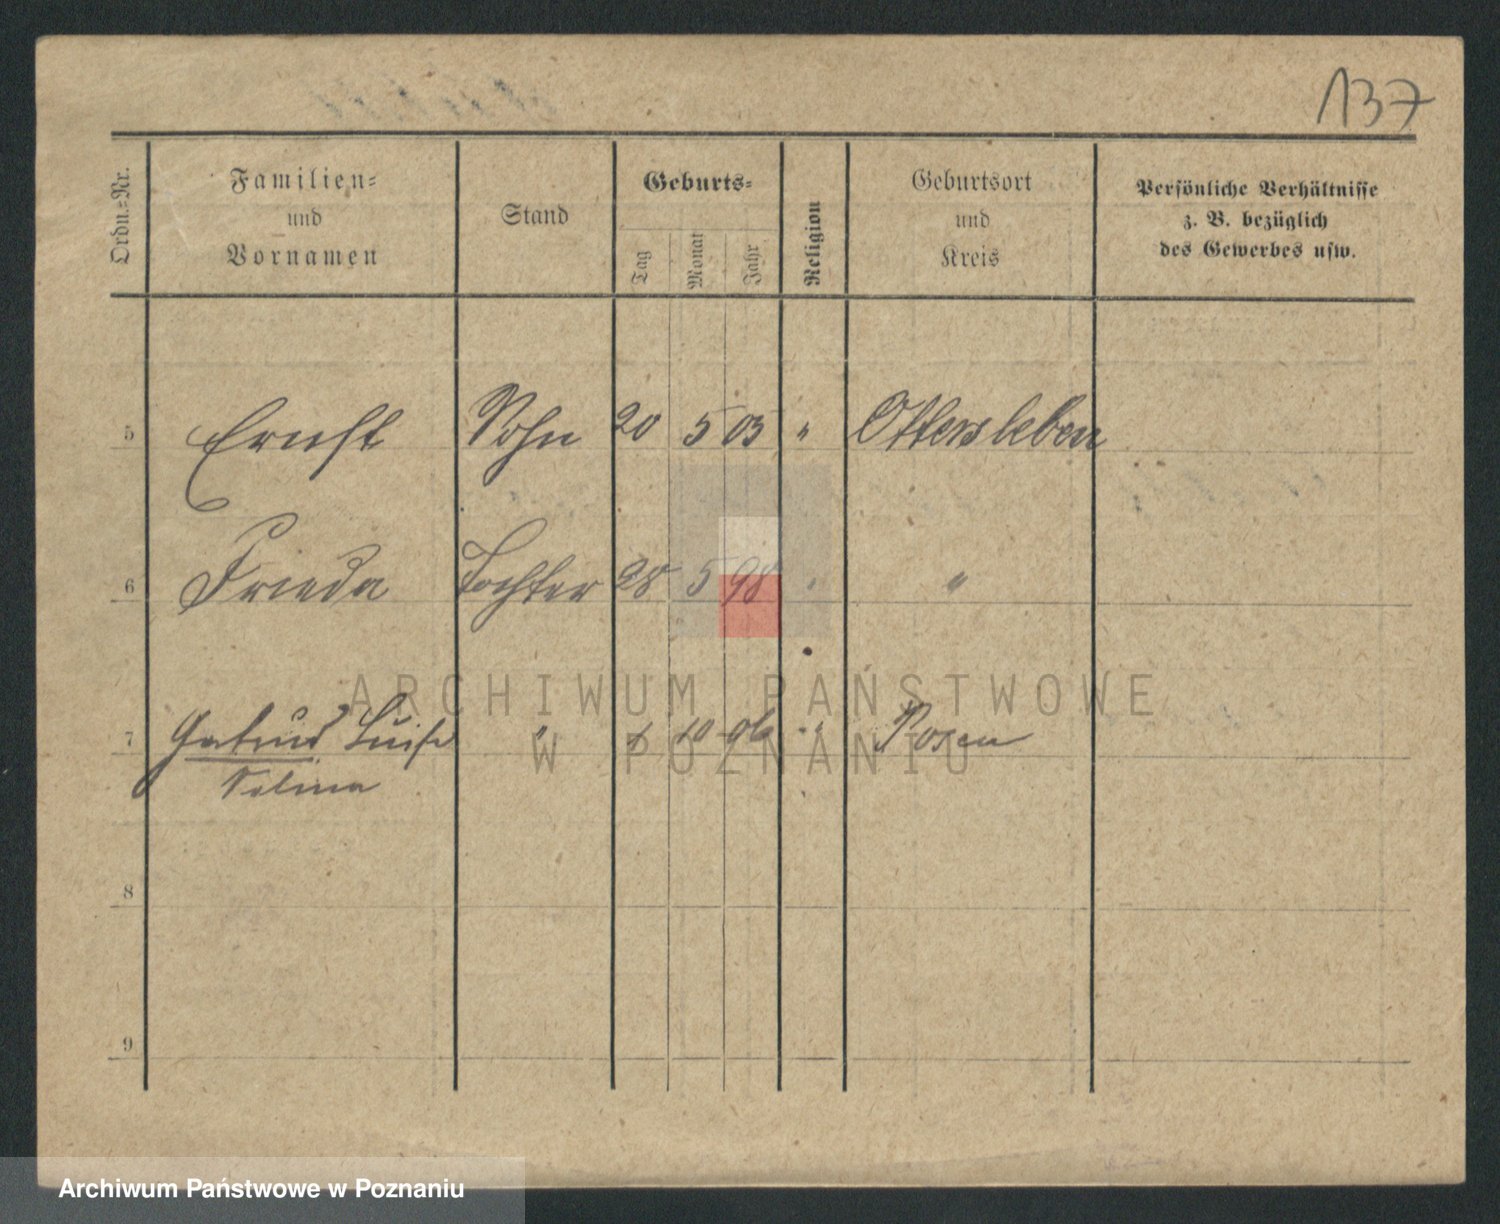 137
Ordn.-Nr.
Familien-
und
Vornamen
Stand
Geburts-
Tag
Monat
Jahr
Religion
Geburtsort
und
Kreis
Persönliche Verhältnisse
z. B. bezüglich
des Gewerbes usw.
5 Ernst Sohn 20 5 03 " Ottersleben
6 Frieda Tochter 28 5 98 " "
ARCHIWUM PAŃSTWOWE
W POZNANIU
7 Luise " 10 96 " Posen
8
9
Archiwum Państwowe w Poznaniu